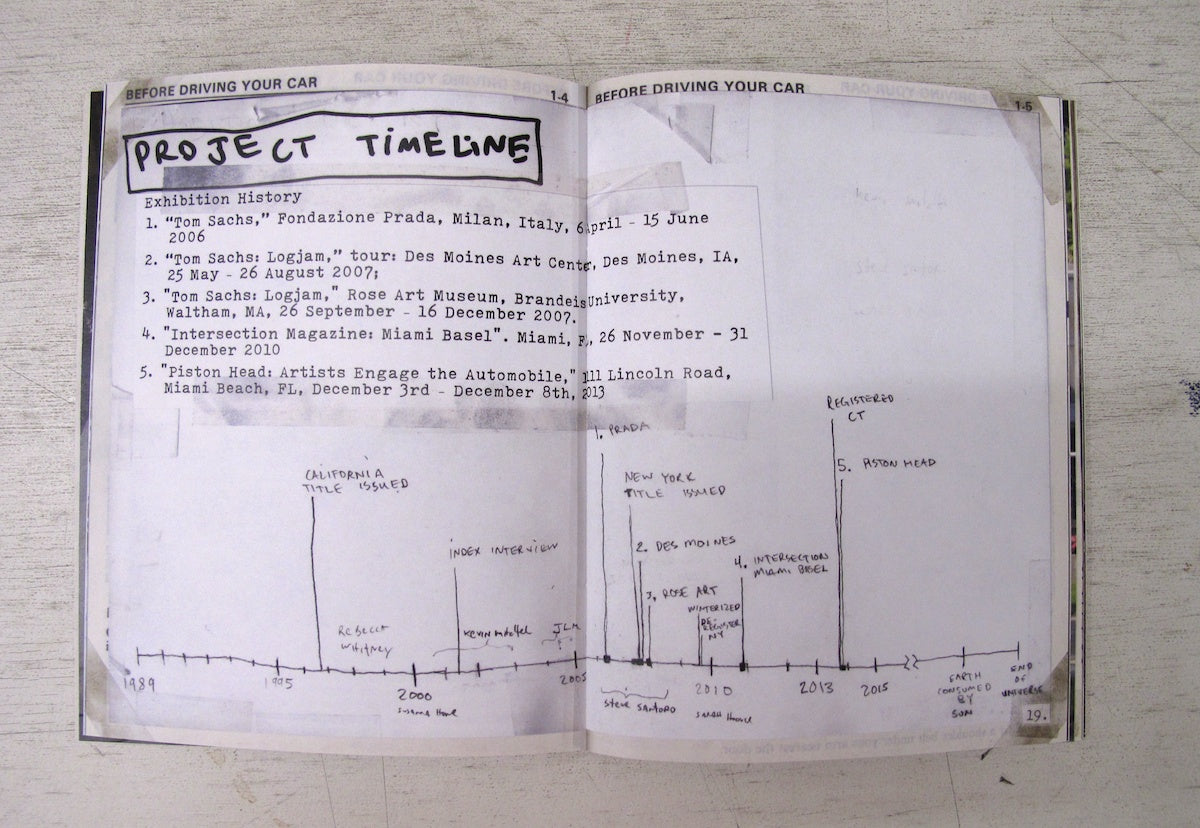 BEFORE DRIVING YOUR CAR
1-4
BEFORE DRIVING YOUR CAR
1-5
PROJECT TIMELINE
Exhibition History
1. “Tom Sachs,” Fondazione Prada, Milan, Italy, 6 April - 15 June
2006
2. “Tom Sachs: Logjam,” tour: Des Moines Art Center, Des Moines, IA,
25 May - 26 August 2007;
3. "Tom Sachs: Logjam," Rose Art Museum, Brandeis University,
Waltham, MA, 26 September - 16 December 2007.
4. "Intersection Magazine: Miami Basel". Miami, FL, 26 November - 31
December 2010
5. "Piston Head: Artists Engage the Automobile," 1111 Lincoln Road,
Miami Beach, FL, December 3rd - December 8th, 2013
REGISTERED
CT
1. PRADA
5. PISTON HEAD
CALIFORNIA
TITLE ISSUED
NEW YORK
TITLE ISSUED
INDEX INTERVIEW
2. DES MOINES
4. INTERSECTION
MIAMI BASEL
3. ROSE ART
WINTERIZED
DE-
REGISTER
NY
REBECCA
WHITNEY
KEVIN
JLM
1989
1995
2000
2005
2010
2013
2015
EARTH
CONSUMED
BY
SUN
END
OF
UNIVERSE
SUSANNA
STEVE SANTORO
SARAH HOOVER
19.